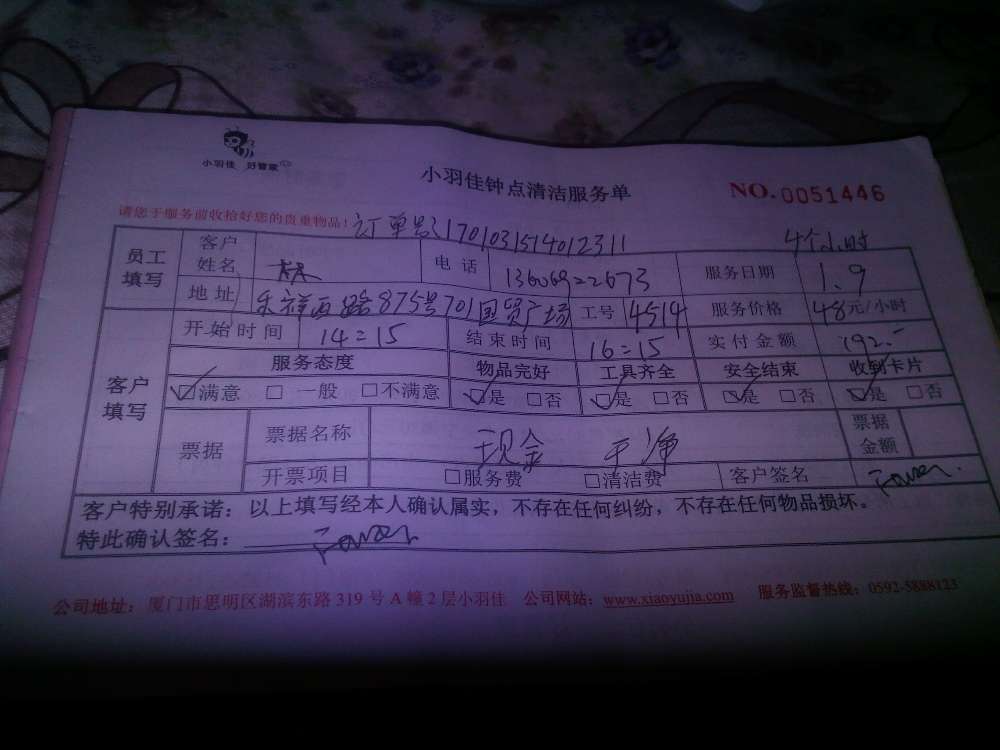 小羽佳 好管家
小羽佳钟点清洁服务单
NO.0051446
请您于服务前收拾好您的贵重物品!
订单号:1701031514012311
4个小时
员工填写 客户姓名 林 电话 13606922673 服务日期 1.9
地址 875号701国贸广场 工号 4514 服务价格 48元/小时
客户填写 开始时间 14:15 结束时间 16:15 实付金额 192.-
服务态度 物品完好 工具齐全 安全结束 收到卡片
☑满意 □一般 □不满意 ☑是 □否 ☑是 □否 ☑是 □否 ☑是 □否
票据 票据名称 现金 干净 票据金额
开票项目 □服务费 □清洁费 客户签名
客户特别承诺:以上填写经本人确认属实,不存在任何纠纷,不存在任何物品损坏。
特此确认签名:
公司地址:厦门市思明区湖滨东路319号A幢2层小羽佳 公司网站:www.xiaoyujia.com 服务监督热线:0592-5888123